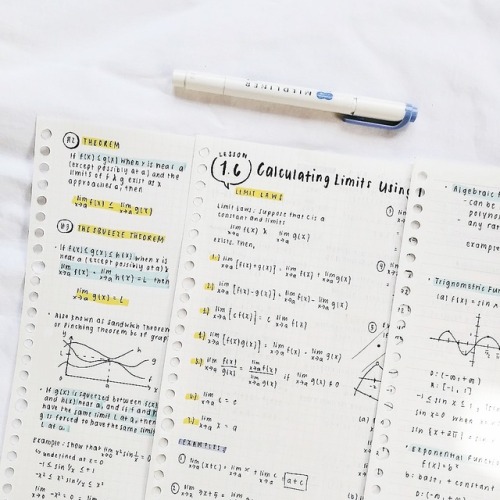 MILDLINER
#2 THEOREM
If f(x) ≤ g(x) when x is near a
(except possibly at a) and the
limits of f & g exist as x
approaches a, then
lim x→a f(x) ≤ lim x→a g(x)
#3 THE SQUEEZE THEOREM
• If f(x) ≤ g(x) ≤ h(x) when x is
near a (except possibly at a) &
lim x→a f(x) = lim x→a h(x) = L then
lim x→a g(x) = L
• Also known as sandwich theorem
or Pinching theorem bc of graph
y
h
g
f
x
• If g(x) is squeezed between f(x)
and h(x) near a, and if f and
have the same limit L at a, then
g is forced to have the same limit
L at a.
Example: show that lim x→0 x² sin 1/x = 0
↳ undefined at x = 0
-1 ≤ sin 1/x ≤ 1
-x² ≤ x² sin 1/x ≤ x²
lim x→0 -x² = 0 = lim
LESSON
1.6 Calculating Limits Using
LIMIT LAWS
Limit Laws: Suppose that c is a
constant and limits
lim x→a f(x) & lim x→a g(x)
exists. Then,
1.) lim x→a [f(x) + g(x)] = lim x→a f(x) + lim x→a g(x)
2.) lim x→a [f(x) - g(x)] = lim x→a f(x) - lim x→a g(x)
3.) lim x→a [c f(x)] = c lim x→a f(x)
4.) lim x→a [f(x)g(x)] = lim x→a f(x) · lim x→a g(x)
5.) lim x→a f(x)/g(x) = lim x→a f(x) / lim x→a g(x) if lim x→a g(x) ≠ 0
6.) lim x→a c = c
7.) lim x→a x = a
EXAMPLES
① lim x→a (x + c) = lim x→a x + lim x→a c = a + c
②
(a)
• Algebraic
- can be
polyn
- any ra
examp
Trigonometric Func
(a) f(x) = sin x
D: (-∞, ∞)
R: [-1, 1]
-1 ≤ sin x ≤ 1
sin x = 0 when
sin (x + 2π) = sin
• Exponential Func
f(x) = b^x
b = base, + constant
D: (-∞, ∞)